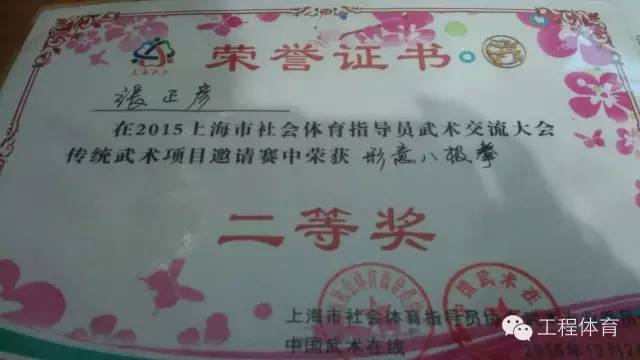 荣誉证书
張正彦
在2015上海市社会体育指导员武术交流大会
传统武术项目邀请赛中荣获 形意八极拳
二等奖
上海市社会体育指导员协
中国武术在线
工程体育